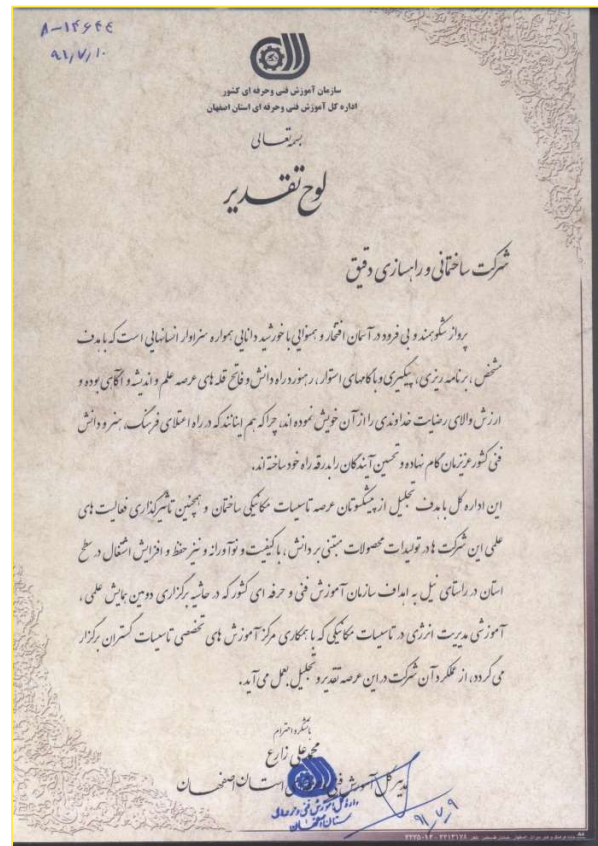 ۸-۱۴۶۴۴
۹۱/۷/۱۰
سازمان آموزش فنی وحرفه ای کشور
اداره کل آموزش فنی وحرفه ای استان اصفهان
بسمه تعالی
لوح تقدیر
شرکت ساختمانی و راهسازی دقیق
پرواز شکوهمند و بی فرود در آسمان افتخار و همنوایی با خورشید دانایی همواره سزاوار انسانهایی است که با هدف
مشخص ، برنامه ریزی، پیگیری و با گامهای استوار ، رهنورد راه دانش و فاتح قله های عرصه علم و اندیشه و آگاهی بوده و
ارزش والای رضایت خداوندی را از آن خویش نموده اند، چرا که هم اینانند که در راه اعتلای فرهنگ، هنر و دانش
فنی کشور عزیزمان گام نهاده و تحسین آیندگان را بدرقه راه خود ساخته اند.
این اداره کل با هدف تجلیل از پیشکسوتان عرصه تاسیسات مکانیکی ساختمان و همچنین تاثیرگذاری فعالیت های
علمی این شرکت ها در تولیدات محصولات مبتنی بر دانش ، با کیفیت و نوآورانه و نیز حفظ و افزایش اشتغال در سطح
استان در راستای نیل به اهداف سازمان آموزش فنی و حرفه ای کشور که در حاشیه برگزاری دومین همایش علمی ،
آموزشی مدیریت انرژی در تاسیسات مکانیکی که با همکاری مرکز آموزش های تخصصی تاسیسات گستران برگزار
می گردد، از عملکرد آن شرکت در این عرصه تقدیر و تجلیل بعمل می آید.
با تشکر و احترام
محمد علی زارع
مدیر کل آموزش فنی و حرفه ای استان اصفهان
اداره کل آموزش فنی و حرفه ای
استان اصفهان
۹۱/۷/۹